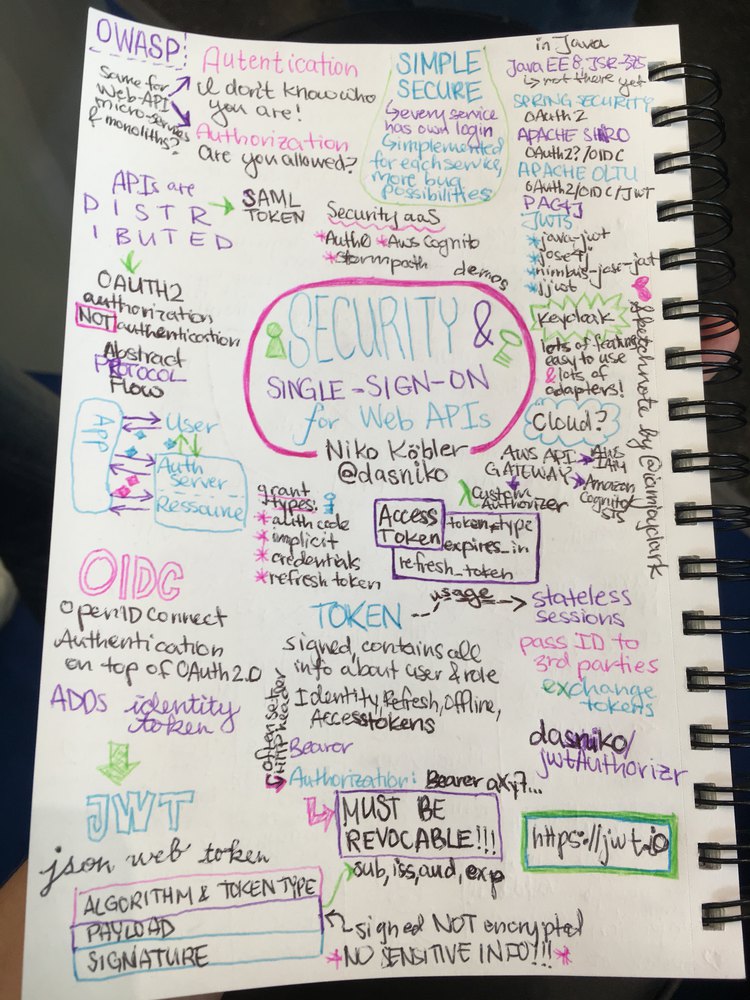 OWASP
Same for
Web-API
micro-services
& monoliths?
Autentication
I don't know who
you are!
Authorization
Are you allowed?
SIMPLE
SECURE
every service
has own login
implemented
for each service,
more bug
possibilities
in Java
Java EE 8 JSR-375
is not there yet
SPRING SECURITY
OAuth2
APACHE SHIRO
OAuth2?/OIDC
APACHE OLTU
OAuth2/OIDC/JWT
PAC4J
JWTS
*java-jwt
*jose4j
*nimbus-jose-jwt
*jjwt
APIs are
DISTR
IBUTED
SAML
TOKEN
Security aaS
*Auth0 *Aws Cognito
*stormpath
demos
OAUTH2
authorization
NOT authentication
Abstract
PROTOCOL
Flow
SECURITY &
SINGLE-SIGN-ON
for Web APIs
Niko Köbler
@dasniko
Keycloak
lots of features
easy to use
& lots of
adapters!
Cloud?
AWS API
GATEWAY
AWS
IAM
Amazon
Cognito
STS
Custom
Authorizer
sketchnote by @iamjoyclark
APP
User
Auth
Server
Ressource
grant
types:
*auth code
*implicit
*credentials
*refresh token
Access
Token
token_type
expires_in
refresh_token
OIDC
OpenID Connect
Authentication
on top of OAuth2.0
ADDS identity
token
TOKEN
usage
stateless
sessions
pass ID to
3rd parties
exchange
tokens
signed, contains all
info about user & role
Identity, Refresh, Offline,
Access tokens
often set on
HTTP header
Bearer
Authorization: Bearer aXy7...
dasniko/
jwtAuthorizr
MUST BE
REVOCABLE!!!
https://jwt.io
JWT
json web token
ALGORITHM & TOKEN TYPE
PAYLOAD
SIGNATURE
sub, iss, aud, exp
signed NOT encrypted
*NO SENSITIVE INFO!!!*